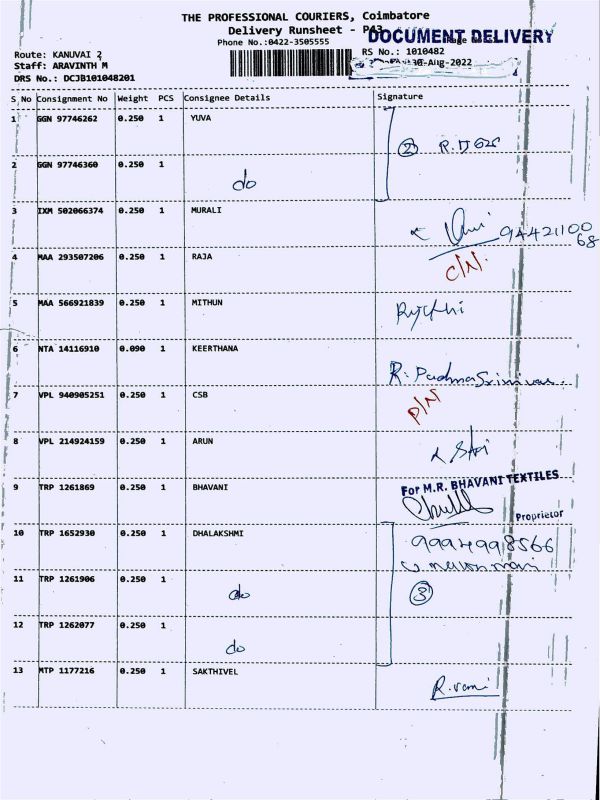 THE PROFESSIONAL COURIERS, Coimbatore
Delivery Runsheet - P43
DOCUMENT DELIVERY
Phone No.:0422-3505555
Route: KANUVAI 2
RS No.: 1010482
Staff: ARAVINTH M
30-Aug-2022
DRS No.: DCJB101048201
S No Consignment No Weight PCS Consignee Details Signature
1 GGN 97746262 0.250 1 YUVA
2
2 GGN 97746360 0.250 1
do
3 IXM 502066374 0.250 1 MURALI
9442110068
4 MAA 293507206 0.250 1 RAJA
C/N.
5 MAA 566921839 0.250 1 MITHUN
6 NTA 14116910 0.090 1 KEERTHANA
R. Padma
7 VPL 940905251 0.250 1 CSB
D/N
8 VPL 214924159 0.250 1 ARUN
9 TRP 1261869 0.250 1 BHAVANI
For M.R. BHAVANI TEXTILES
Proprietor
10 TRP 1652930 0.250 1 DHALAKSHMI
9994998566
11 TRP 1261906 0.250 1
do
3
12 TRP 1262077 0.250 1
do
13 MTP 1177216 0.250 1 SAKTHIVEL
R. vani